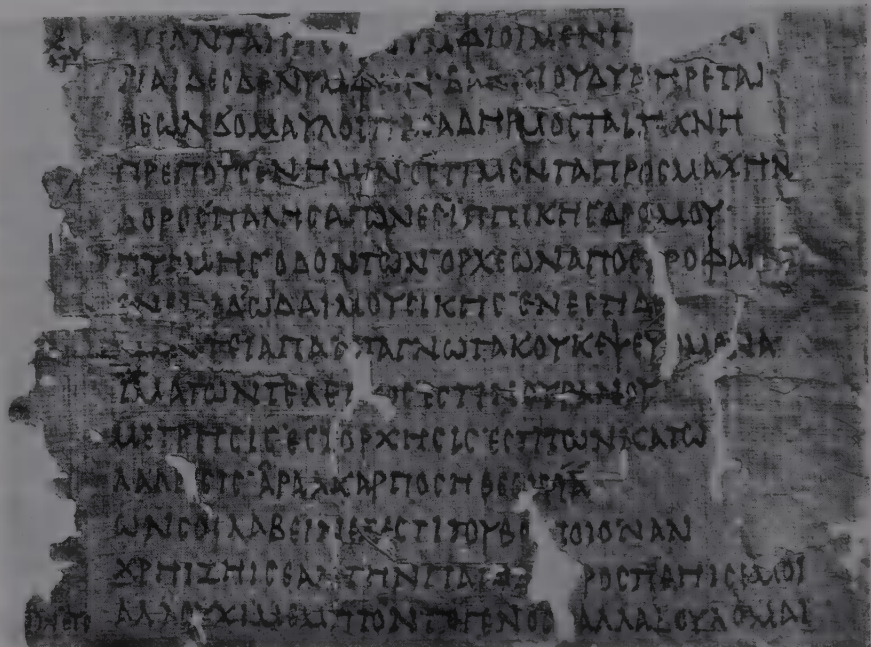 ΑΠΑΝΤΑΠΕΥΣΗΙ ΝΥΜΦΙΟΙΜΕΝΗ
ΠΑΙΔΕΣΔΕΝΥΜΦΩΝ ΒΑΚΧΙΟΥΔΥΠΗΡΕΤΑΙ
ΘΕΩΝΔΟΜΑΥΛΟΙΠΑΣΑΔΗΡΜΟΣΤΑΙΤΕΧΝΗ
ΠΡΕΠΟΥΣΕΝΗΜΙΝΕΣΤΙΜΕΝΤΑΠΡΟΣΜΑΧΗΝ
ΔΟΡΟΣΠΑΛΗΣΑΓΩΝΕΣΙΠΠΙΚΗΣΔΡΟΜΟΥ
ΠΥΓΜΗΣΟΔΟΝΤΩΝΟΡΧΕΩΝΑΠΟΣΤΡΟΦΑΙ
ΕΝΕΙΣΙΔΩΔΑΙΜΟΥΣΙΚΗΣΕΝΕΣΤΙΔΕ
ΜΑΝΤΕΙΑΠΑΝΤΑΓΝΩΤΑΚΟΥΚΕΨΕΥΣΜΕΝΑ
ΙΑΜΑΤΩΝΤΕΛΕΓΧΟΣΕΣΤΙΝΟΥΡΑΝΟΥ
ΜΕΤΡΗΣΙΣΕΣΤΟΡΧΗΣΙΣΕΣΤΙΤΩΝΚΑΤΩ
ΛΑΛΗΣΙΣΑΡΑΚΑΡΠΟΣΗΘΕΩΡΙΑ
ΩΝΣΟΙΛΑΒΕΙΝΕΞΕΣΤΙΤΟΥΘΟΠΟΙΟΝΑΝ
ΧΡΗΙΖΗΙΣΕΑΝΤΗΝΠΑΙΔΑΠΡΟΣΤΙΘΗΙΣΕΜΟΙ
ΑΛΛΟΥΧΙΜΕΜΠΤΟΝΤΟΓΕΝΟΣ ΑΛΛΑΒΟΥΛΟΜΑΙ